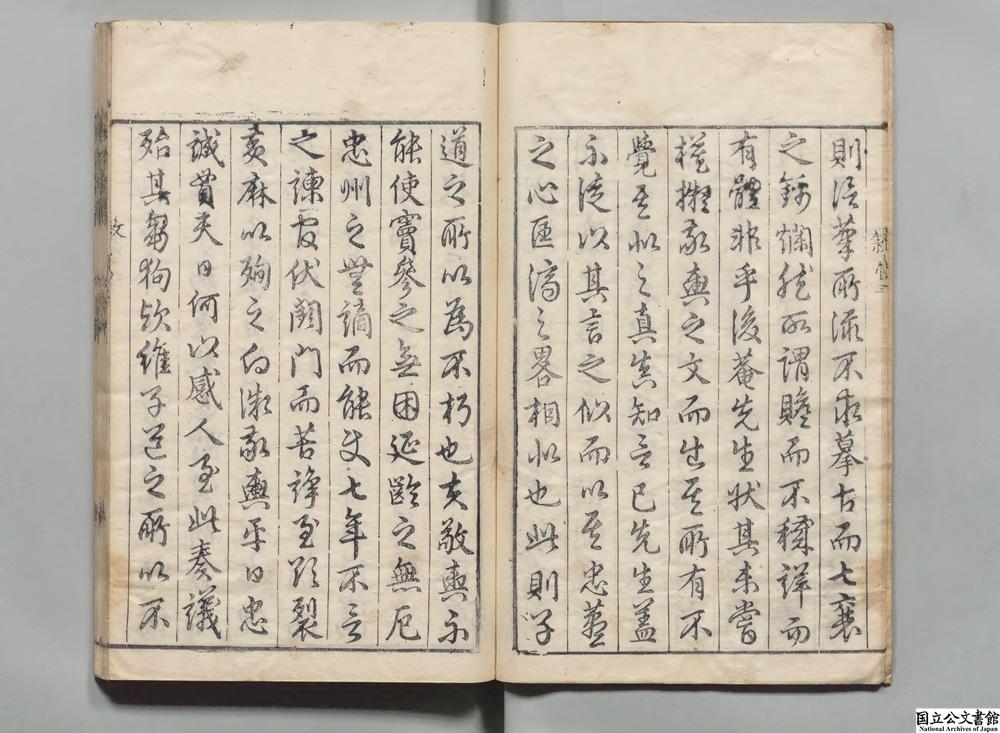 則信筆所漾不求摹古而七襄
之錦爛然所謂贍而不穢詳而
有體非乎後菴先生狀其未嘗
擬敬輿之文而出其所有不
覺其似之真知言已先生蓋
不徒以其言之似而以其忠藎
之心匡濟之畧相似也此則子
道之所以為不朽也夫敬輿不
能使竇參之無困延齡之無厄
忠州之無謫而能使七年不言
之諫官伏閤門而苦諍至欲裂
黃麻以殉之向微敬輿平日忠
誠貫天日何以感人至此奏議
殆其芻狗歟維子道之所以不
国立公文書館
National Archives of Japan